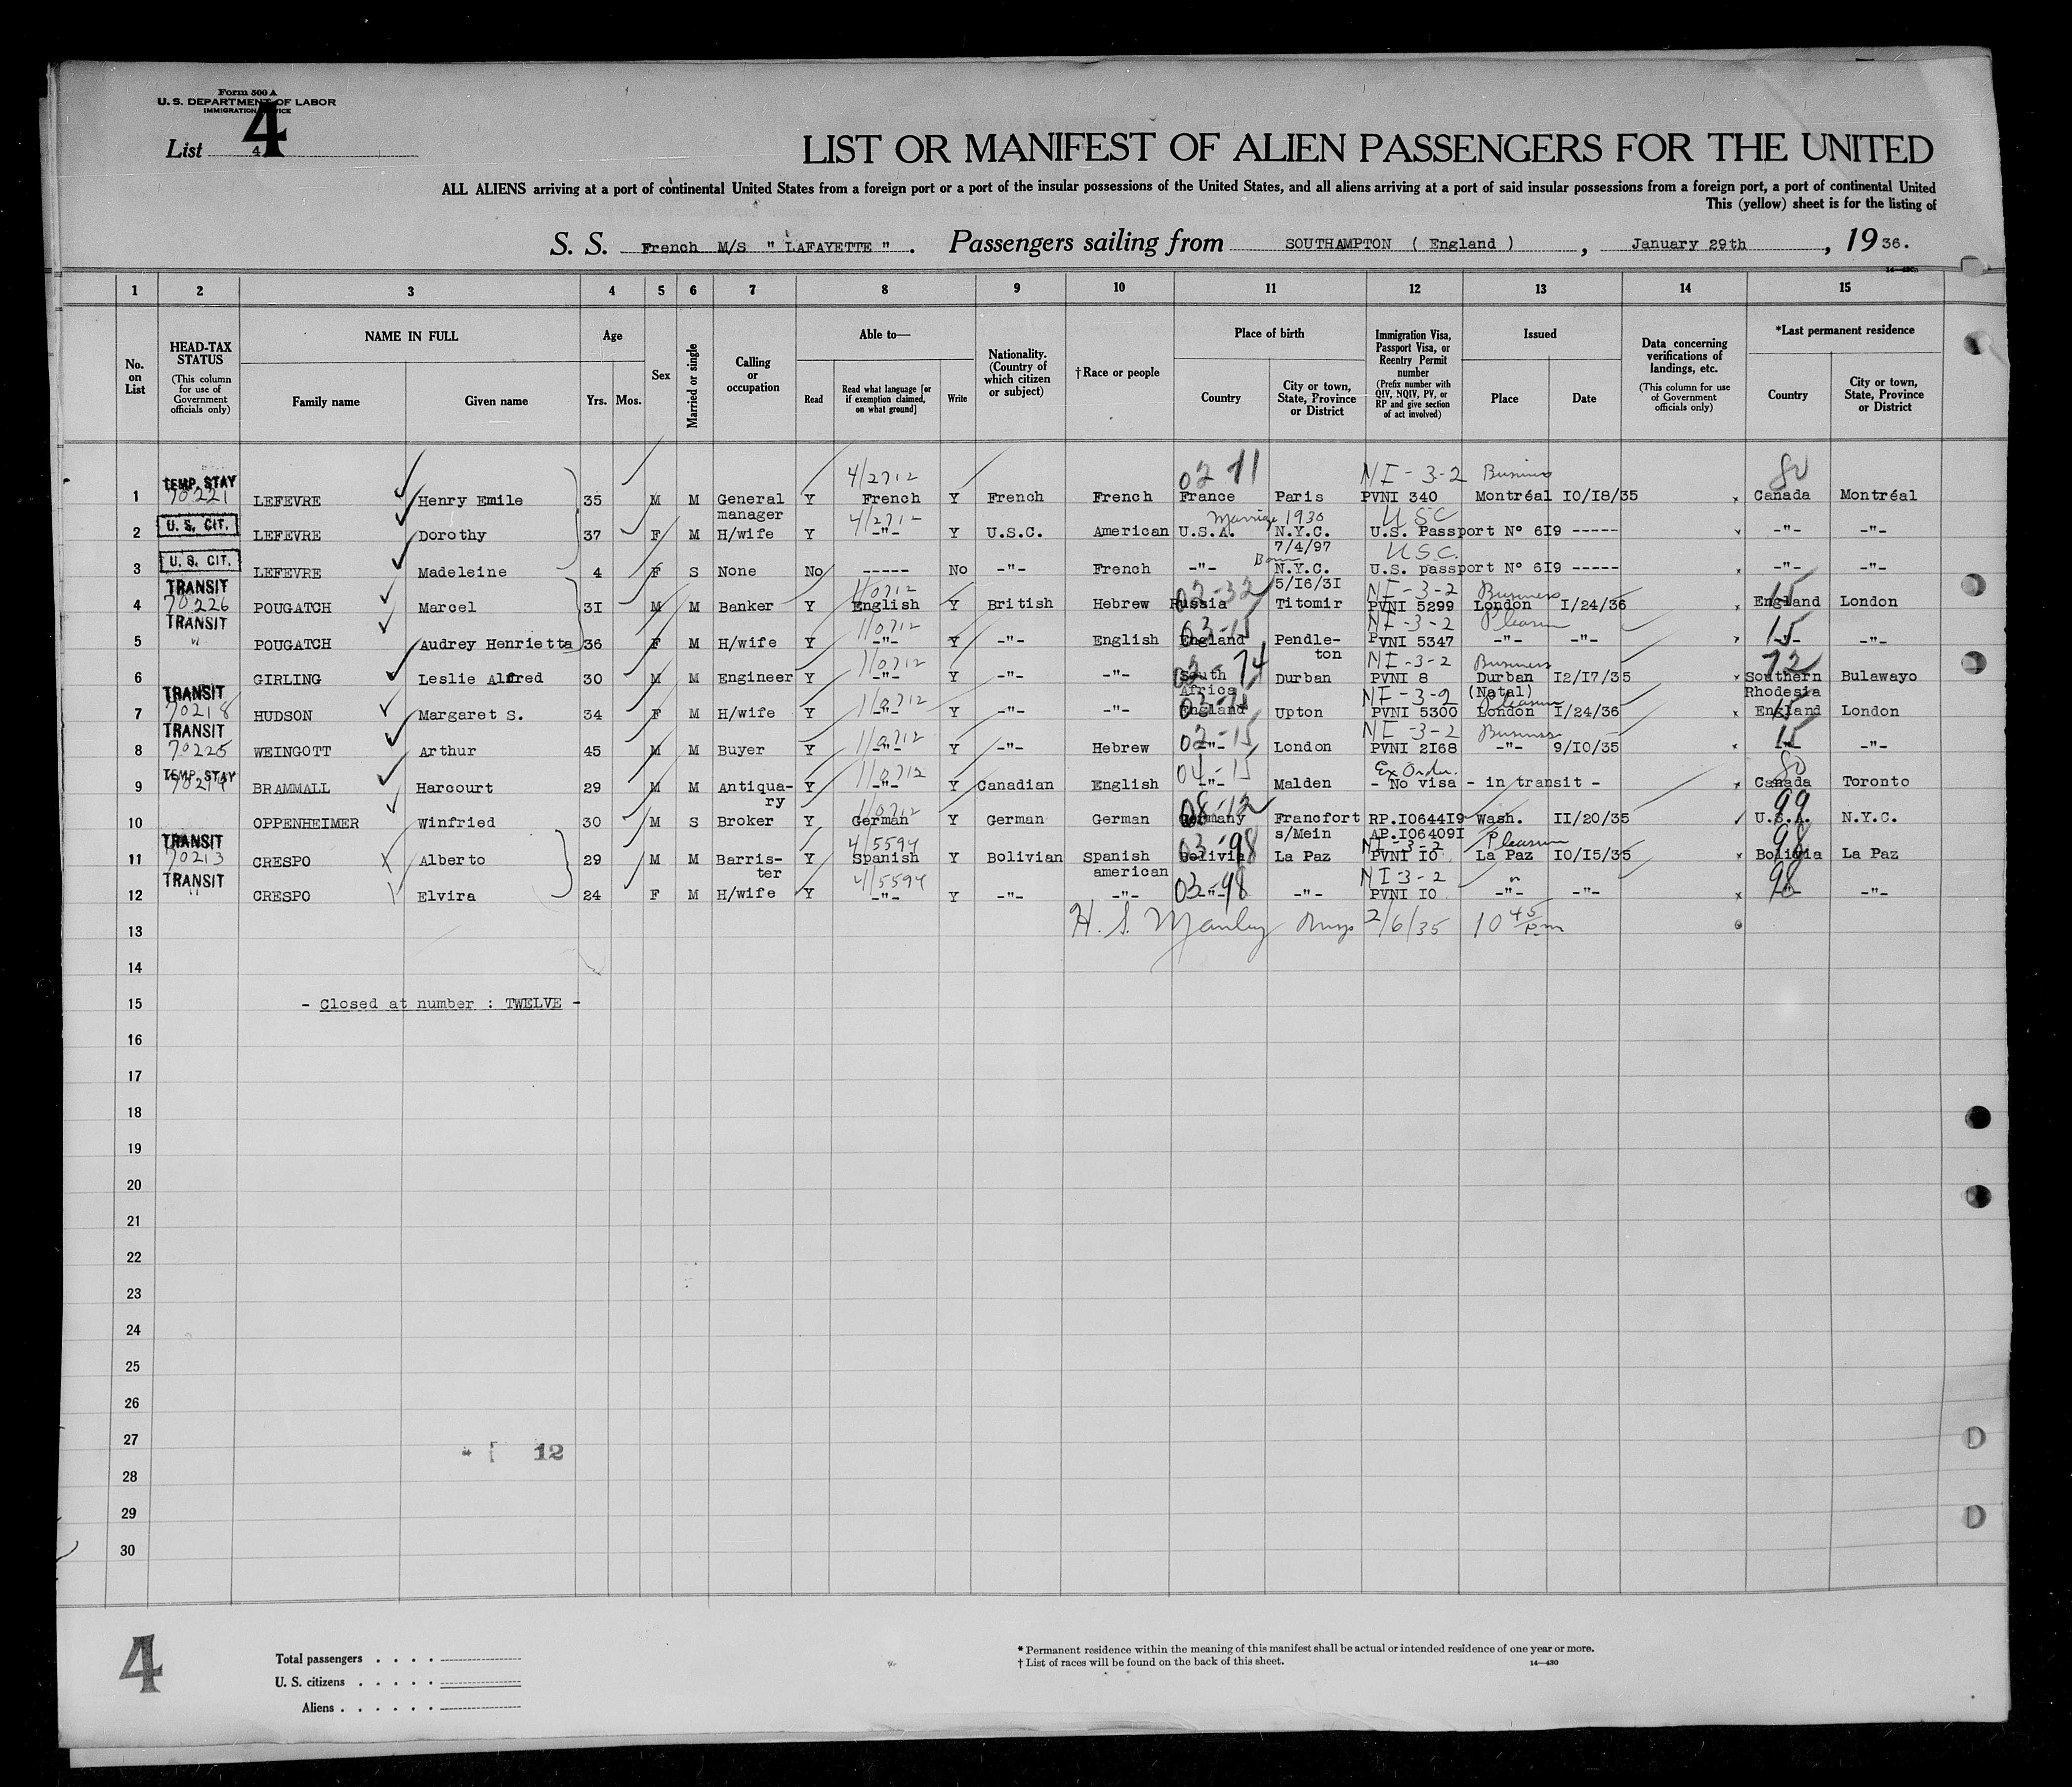 Form 500 A
U. S. DEPARTMENT OF LABOR
IMMIGRATION SERVICE
List 4
4
LIST OR MANIFEST OF ALIEN PASSENGERS FOR THE UNITED
ALL ALIENS arriving at a port of continental United States from a foreign port or a port of the insular possessions of the United States, and all aliens arriving at a port of said insular possessions from a foreign port, a port of continental United
This (yellow) sheet is for the listing of
S. S. French M/S " LAFAYETTE " . Passengers sailing from SOUTHAMPTON ( England ) , January 29th , 19 36.
1 2 3 4 5 6 7 8 9 10 11 12 13 14 15
No. on List
HEAD-TAX STATUS (This column for use of Government officials only)
NAME IN FULL Family name Given name
Age Yrs. Mos.
Sex
Married or single
Calling or occupation
Able to— Read Read what language [or if exemption claimed, on what ground] Write
Nationality. (Country of which citizen or subject)
†Race or people
Place of birth Country City or town, State, Province or District
Immigration Visa, Passport Visa, or Reentry Permit number (Prefix number with QIV, NQIV, PV, or RP and give section of act involved)
Issued Place Date
Data concerning verifications of landings, etc. (This column for use of Government officials only)
*Last permanent residence Country City or town, State, Province or District
TEMP. STAY 4/2712 02 71 NI-3-2 Business 80
1 70221 LEFEVRE Henry Emile 35 M M General Y French Y French French France Paris PVNI 340 Montréal IO/I8/35 Canada Montréal
manager 4/2712 Marriage 1930 USC
2 U. S. CIT. LEFEVRE Dorothy 37 F M H/wife Y -"- Y U.S.C. American U.S.A. N.Y.C. U.S. Passport N° 6I9 ----- -"- -"-
7/4/97 U.S.C.
3 U. S. CIT. LEFEVRE Madeleine 4 F S None No ----- No -"- French -"- Born N.Y.C. U.S. passport N° 6I9 ----- -"- -"-
TRANSIT 1/0712 02-32 5/I6/3I NI-3-2 Business 15
4 70226 POUGATCH Marcel 3I M M Banker Y English Y British Hebrew Russia Titomir PVNI 5299 London I/24/36 England London
TRANSIT 1/0712 03-15 NI-3-2 Pleasure 15
5 " POUGATCH Audrey Henrietta 36 F M H/wife Y -"- Y -"- English England Pendle- PVNI 5347 -"- -"- -"- -"-
1/0712 74 ton NI-3-2 Business 72
6 GIRLING Leslie Alfred 30 M M Engineer Y -"- Y -"- -"- South Durban PVNI 8 Durban I2/I7/35 Southern Bulawayo
TRANSIT 1/0712 Africa NI-3-2 (Natal) Pleasure Rhodesia
7 70218 HUDSON Margaret S. 34 F M H/wife Y -"- Y -"- -"- England Upton PVNI 5300 London I/24/36 England London
TRANSIT 1/0712 02-15 NI-3-2 Business 15
8 70225 WEINGOTT Arthur 45 M M Buyer Y -"- Y -"- Hebrew -"- London PVNI 2I68 -"- 9/IO/35 -"-
TEMP. STAY 1/0712 04-15 Ex Order. 80
9 BRAMMALL Harcourt 29 M M Antiqua- Y -"- Y Canadian English -"- Malden - No visa - in transit - Canada Toronto
ry 1/0712 08-12 99
10 OPPENHEIMER Winfried 30 M S Broker Y German Y German German Germany Francfort RP.I0644I9 Wash. II/20/35 U.S.A. N.Y.C.
TRANSIT 4/5594 03-98 s/Mein AP.I06409I NI-3-2 Pleasure 98
11 70213 CRESPO Alberto 29 M M Barris- Y Spanish Y Bolivian Spanish Bolivia La Paz PVNI IO La Paz IO/I5/35 Bolivia La Paz
TRANSIT ter 4/5594 american 03-98 NI-3-2 " 98
12 " CRESPO Elvira 24 F M H/wife Y -"- Y -"- -"- -"- -"- PVNI IO -"- -"- -"- -"-
13 H. S. Manley 2/6/35 10 45 pm
14
15 - Closed at number : TWELVE -
16
17
18
19
20
21
22
23
24
25
26
27
12
28
29
30
4
Total passengers . . . .
U. S. citizens . . . . .
Aliens . . . . . .
* Permanent residence within the meaning of this manifest shall be actual or intended residence of one year or more.
† List of races will be found on the back of this sheet.
14—430